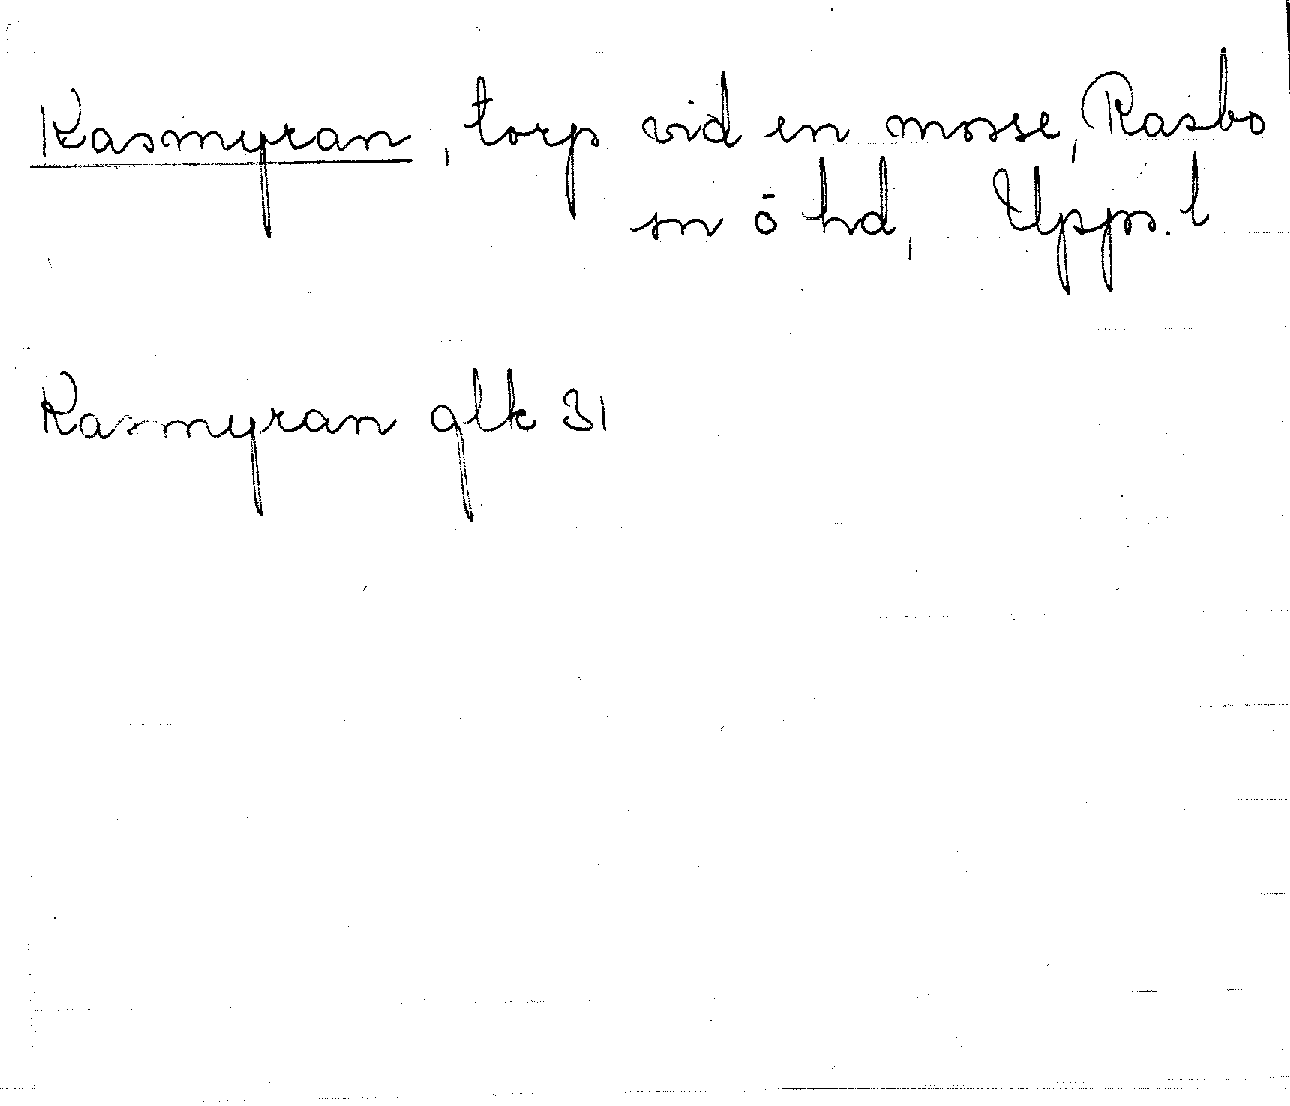 Kasmyran, torp vid en mosse, Rasbo
sn o hd, Upps. l
Kasmyran glk 31